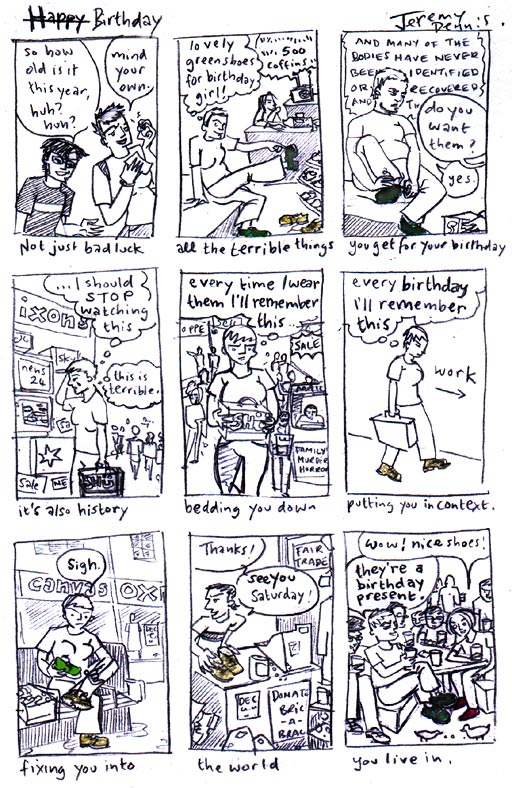 Happy Birthday
Jeremy
Dennis.
so how
old is it
this year,
huh?
huh?
mind
your
own.
Not just bad luck
lovely
green shoes
for birthday
girl!
500
coffins..
all the terrible things
AND MANY OF THE
BODIES HAVE NEVER
BEEN IDENTIFIED
OR RECOVERED
AND
do you
want
them?
yes.
you get for your birthday
...I should
STOP
watching
this
ixons
news
24
this is
terrible.
Sale
NE
SHU
it's also history
every time I wear
them I'll remember
this...
OPPE
SALE
SHU
FAMILY
MURDER
HORROR
bedding you down
every birthday
I'll remember
this
work
putting you in context.
Sigh.
canvas OX
fixing you into
Thanks!
FAIR
TRADE
see you
Saturday!
DONATE
BRIC
-A-
BRAC
the world
Wow! nice shoes!
they're a
birthday
present.
you live in.